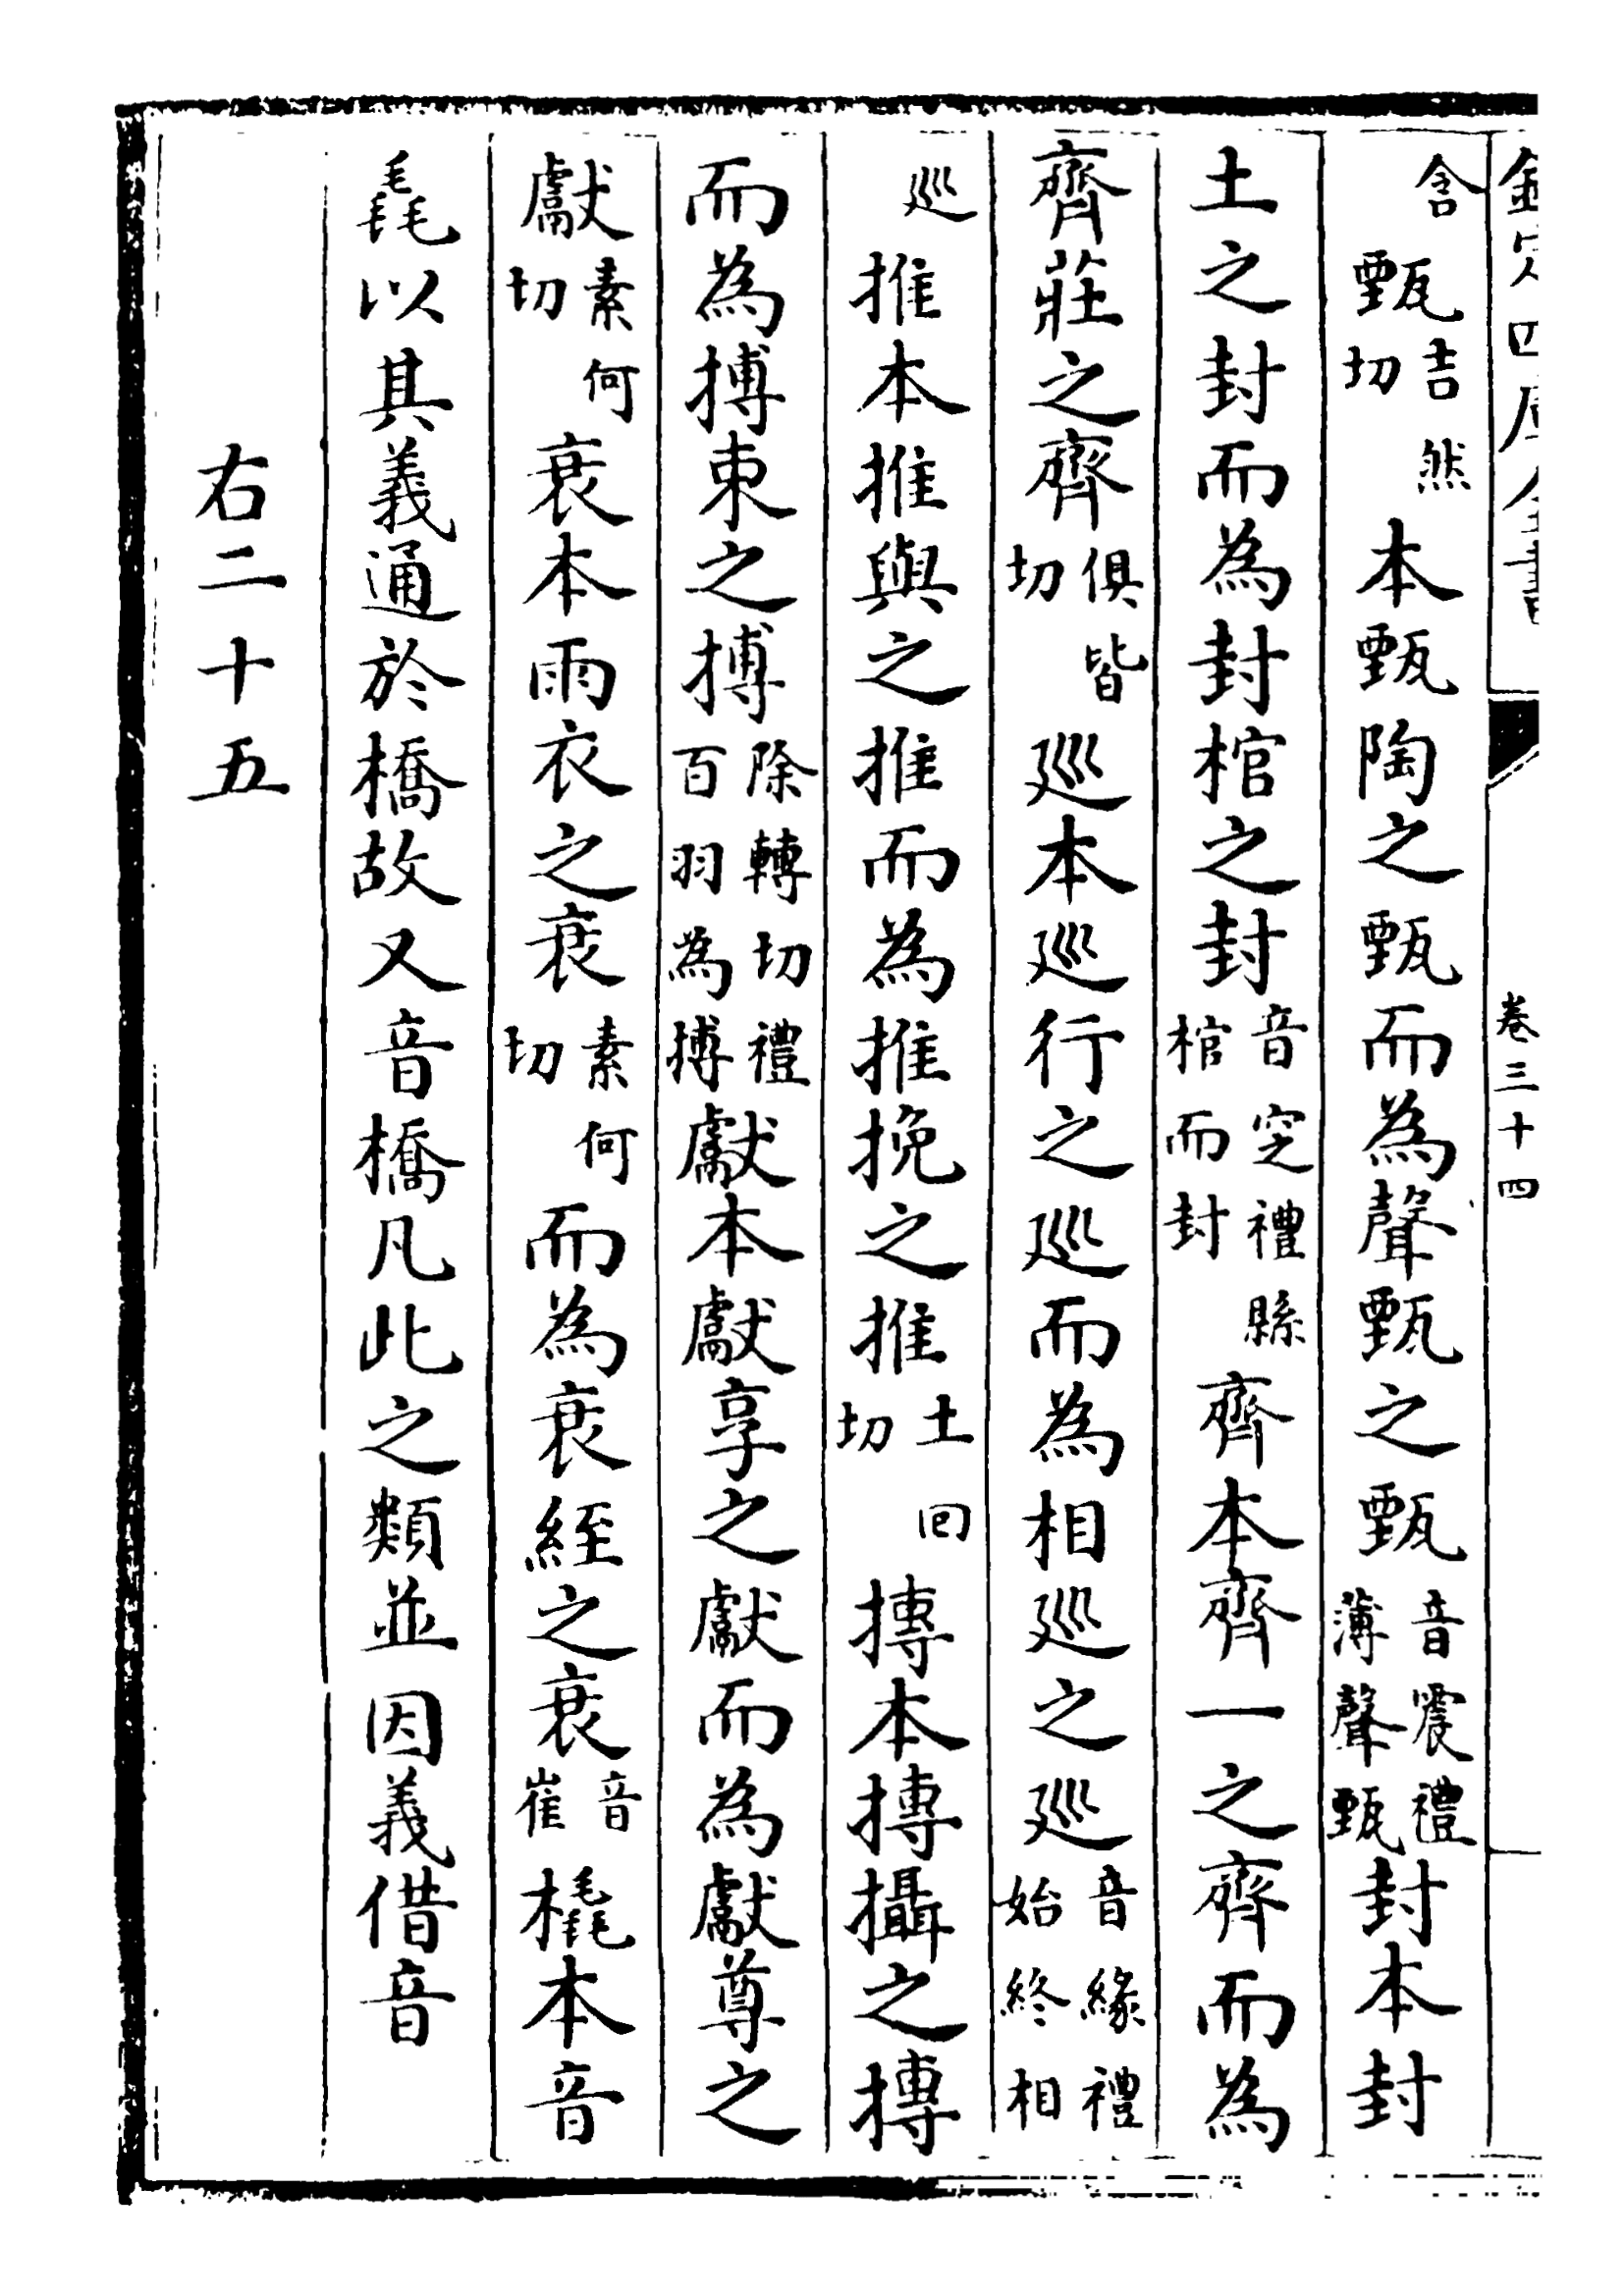 欽定四庫全書 卷三十四
含甄吉然切本甄陶之甄而為聲甄之甄音震禮薄聲甄封本封
土之封而為封棺之封音窆禮縣棺而封齊本齊一之齊而為
齊莊之齊俱皆切巡本巡行之巡而為相巡之巡音緣禮始終相
巡推本推與之推而為推挽之推土回切摶本摶攝之摶
而為搏東之搏除轉切禮百羽為搏獻本獻享之獻而為獻尊之
獻素何切衰本雨衣之衰素何切而為衰絰之衰音崔橇本音
毳以其義通於橋故又音橋凡此之類並因義借音
右二十五